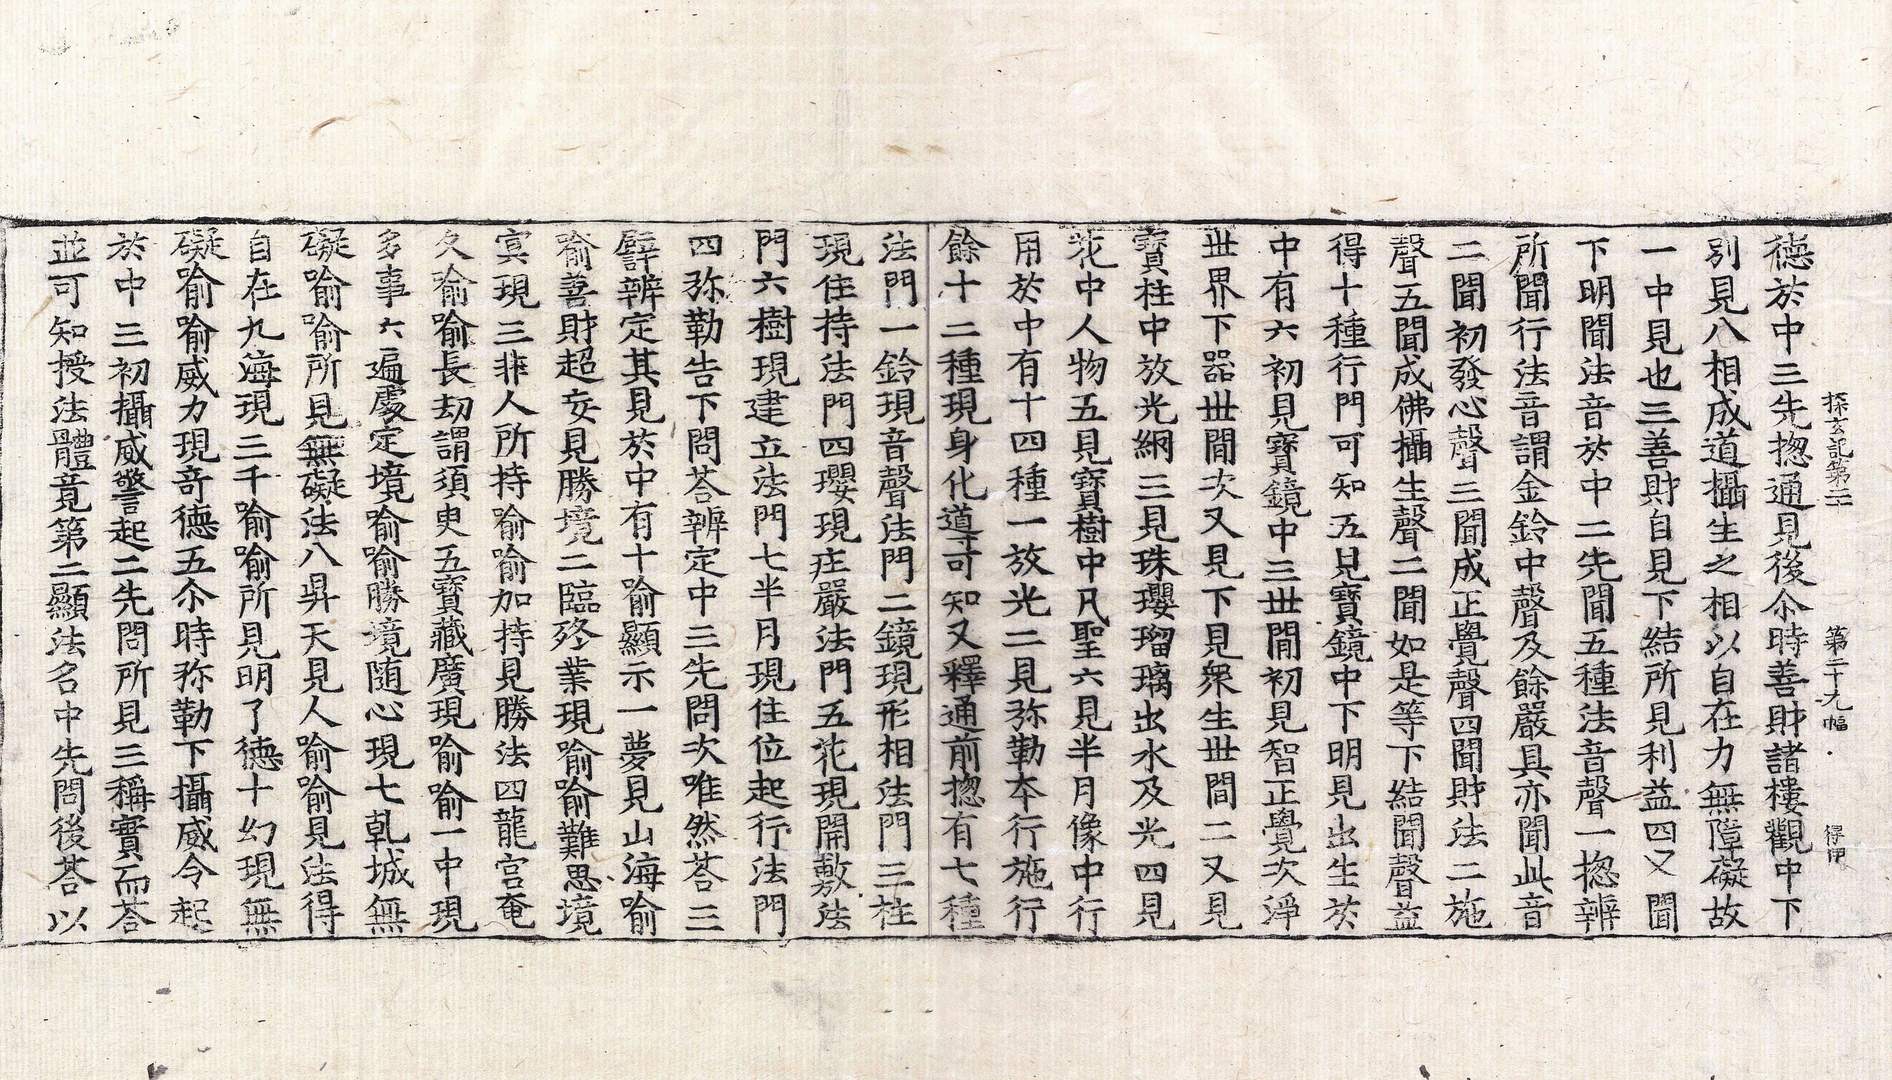 探玄記第二十 第二十九幅 得甲
德於中三先揔通見後尒時善財諸樓觀中下
別見八相成道攝生之相以自在力無障礙故
一中見也三善財自見下結所見利益四又聞
下明聞法音於中二先聞五種法音聲一揔辨
所聞行法音謂金鈴中聲及餘嚴具亦聞此音
二聞初發心聲三聞成正覺聲四聞財法二施
聲五聞成佛攝生聲二聞如是等下結聞聲益
得十種行門可知五見寶鏡中下明見出生於
中有六初見寶鏡中三世間初見智正覺次淨
世界下器世間次又見下見衆生世間二又見
寶柱中放光網三見珠瓔瑠璃出水及光四見
花中人物五見寶樹中凡聖六見半月像中行
用於中有十四種一放光二見弥勒夲行施行
餘十二種現身化導可知又釋通前揔有七種
法門一鈴現音聲法門二鏡現形相法門三柱
現住持法門四瓔現庄嚴法門五花現開敷法
門六樹現建立法門七半月現住位起行法門
四弥勒告下問荅辨定中三先問次唯然荅三
譬辨定其見於中有十喻顯示一夢見山海喻
喻善財超妄見勝境二臨終業現喻喻難思境
㝠現三非人所持喻喻加持見勝法四龍宮奄
久喻喻長劫謂須臾五寶藏廣現喻喻一中現
多事六遍處定境喻喻勝境随心現七乹城無
礙喻喻所見無礙法八昇天見人喻喻見法得
自在九海現三千喻喻所見明了德十幻現無
礙喻喻威力現奇德五尒時弥勒下攝威令起
於中三初攝威警起二先問所見三稱實而荅
並可知授法體竟第二顯法名中先問後荅以